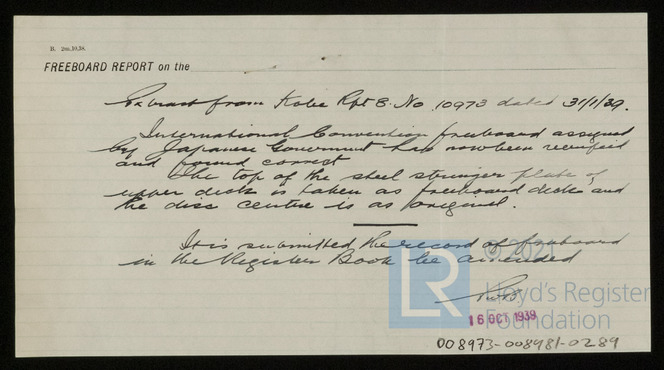 R. 2m,10,38.
FREEBOARD REPORT on the
Extract from Kobe Rpt 8. No. 10973 dated 31/1/39.
International Convention freeboard assigned
by Japanese Government has now been verified
and found correct
The top of the steel stringer plate of
upper deck is taken as freeboard deck and
the disc centre is as original.
It is submitted the record of freeboard
in the Register Book be amended
© 2021
LR Lloyd's Register
Foundation
16 OCT 1939
008973-008981-0289